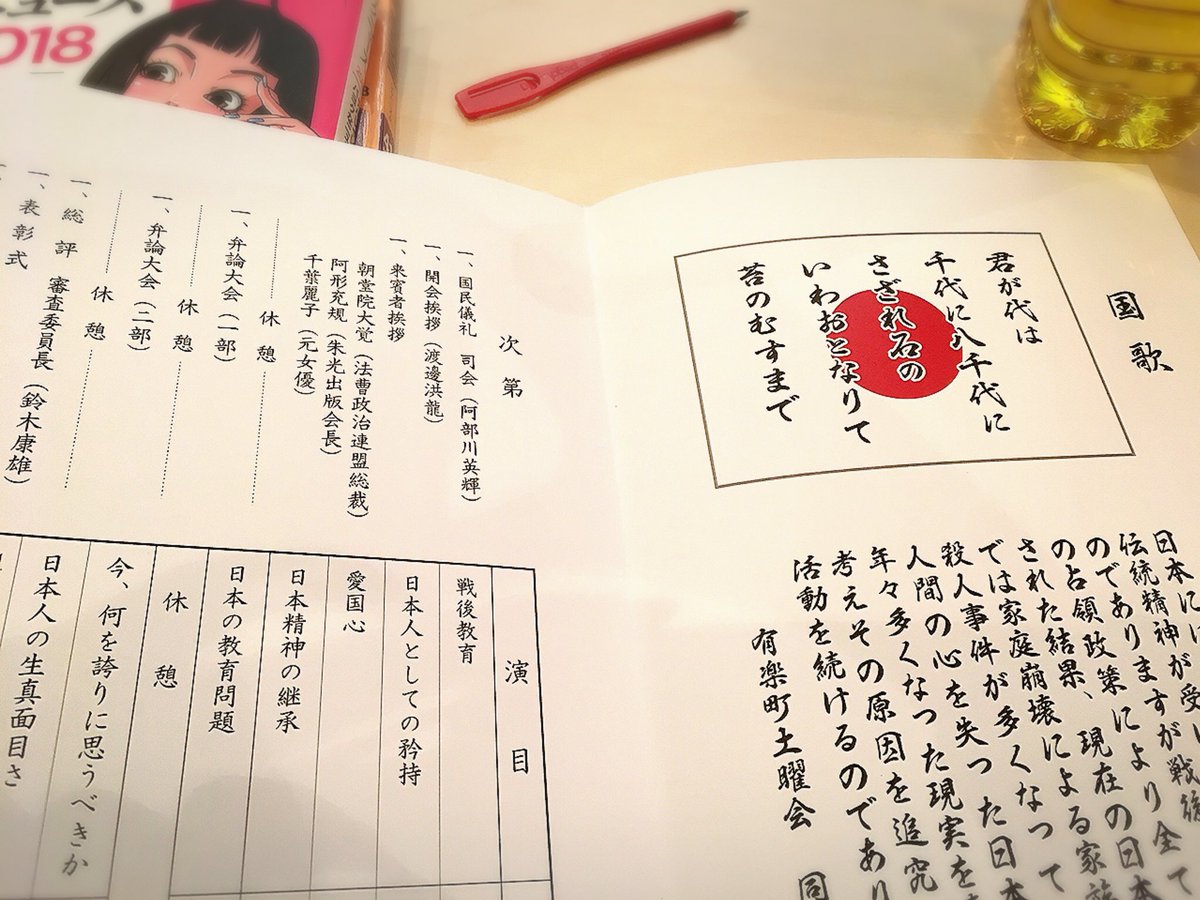 ニュース
2018
国歌
君が代は
千代に八千代に
さざれ石の
いわおとなりて
苔のむすまで
日本には受け
伝統精神が戦後
のでありますがより全て
の占領政策により
された結果、現在の日本
では家庭崩壊による家族
殺人事件が多くなって
人間の心を失った日本
年々多くなった現実を
考えその原因を追究
活動を続けるのであり
有楽町土曜会
次第
一、国民儀礼 司会(阿部川英輝)
一、開会挨拶(渡邊洪龍)
一、来賓者挨拶
朝堂院大覚(法曹政治連盟総裁)
阿形充規(朱光出版会長)
千葉麗子(元女優)
休憩
一、弁論大会(一部)
休憩
一、弁論大会(二部)
休憩
一、総評 審査委員長(鈴木康雄)
一、表彰式
演目
戦後教育
日本人としての矜持
愛国心
日本精神の継承
日本の教育問題
休憩
今、何を誇りに思うべきか
日本人の生真面目さ